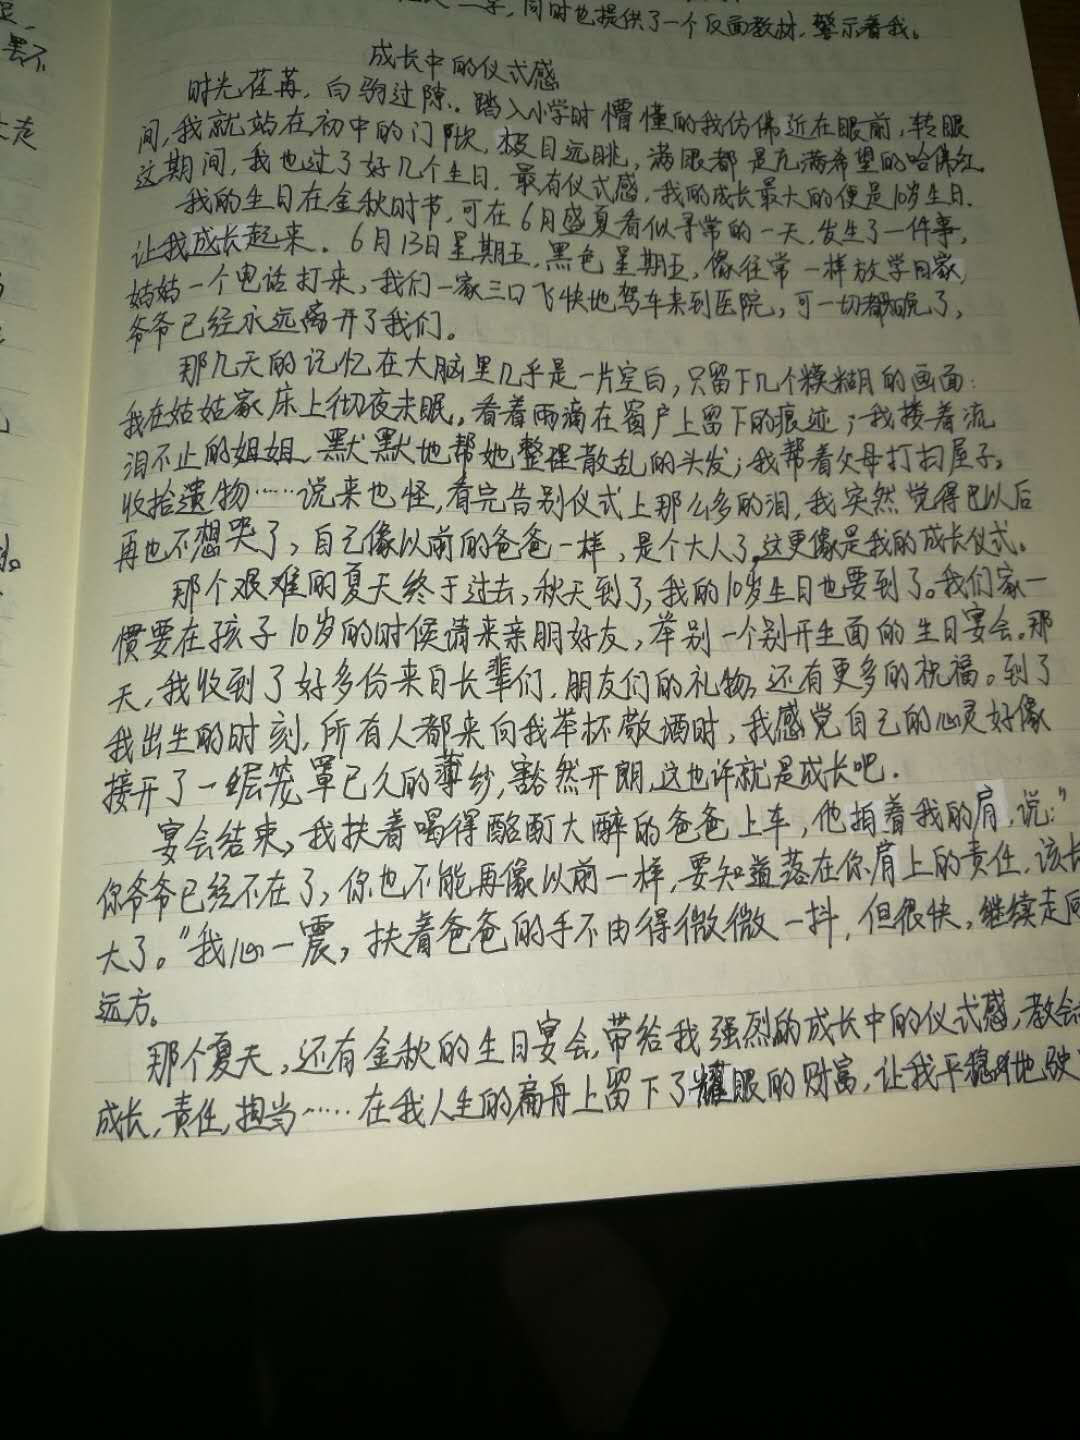 同时也提供了一个反面教材，警示着我。
成长中的仪式感
时光荏苒，白驹过隙．踏入小学时懵懂的我仿佛近在眼前，转眼
间，我就站在初中的门口，极目远眺，满眼都是充满希望的哈佛红．
这期间，我也过了好几个生日．最有仪式感，我的成长最大的便是10岁生日．
我的生日在金秋时节，可在6月盛夏看似寻常的一天，发生了一件事，
让我成长起来．6月13日星期五，黑色星期五，像往常一样放学回家，
姑姑一个电话打来，我们一家三口飞快地驾车来到医院，可一切都晚了，
爷爷已经永远离开了我们。
那几天的记忆在大脑里几乎是一片空白，只留下几个模糊的画面：
我在姑姑家床上彻夜未眠，看着雨滴在窗户上留下的痕迹；我搂着流
泪不止的姐姐，默默地帮她整理散乱的头发；我帮着父母打扫屋子，
收拾遗物……说来也怪，看完告别仪式上那么多的泪，我突然觉得自己以后
再也不想哭了，自己像以前的爸爸一样，是个大人了。这更像是我的成长仪式。
那个艰难的夏天终于过去，秋天到了，我的10岁生日也要到了。我们家一
惯要在孩子10岁的时候请来亲朋好友，举别一个别开生面的生日宴会。那
天，我收到了好多份来自长辈们，朋友们的礼物，还有更多的祝福。到了
我出生的时刻，所有人都来向我举杯敬酒时，我感觉自己的心灵好像
接开了一层笼罩已久的薄纱，豁然开朗，这也许就是成长吧．
宴会结束，我扶着喝得酩酊大醉的爸爸上车，他拍着我的肩，说：“
你爷爷已经不在了，你也不能再像以前一样，要知道落在你肩上的责任，该长
大了。”我心一震，扶着爸爸的手不由得微微一抖，但很快，继续走向
远方。
那个夏天，还有金秋的生日宴会，带给我强烈的成长中的仪式感，教会
成长，责任，担当……在我人生的扁舟上留下了耀眼的财富，让我平稳地驶